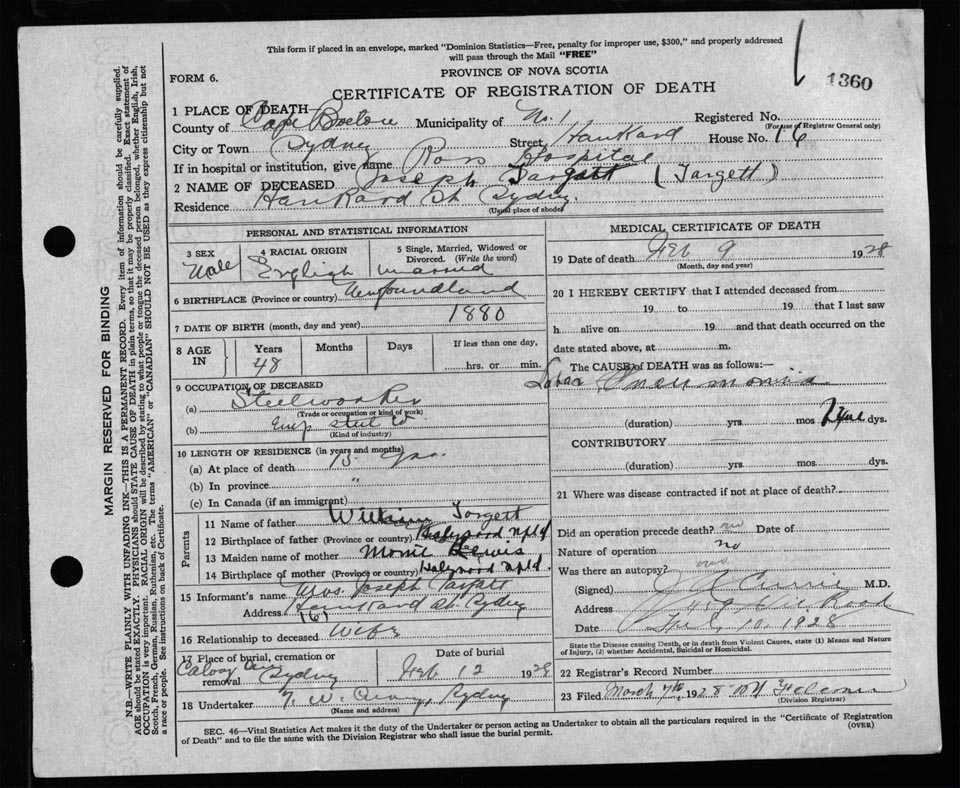 This form if placed in an envelope, marked "Dominion Statistics—Free, penalty for improper use, $300," and properly addressed
will pass through the Mail "FREE"
FORM 6.
PROVINCE OF NOVA SCOTIA
1360
CERTIFICATE OF REGISTRATION OF DEATH
1 PLACE OF DEATH
County of Cape Breton Municipality of No. 1 Registered No.
(For use of Registrar General only)
City or Town Sydney Street Hankard House No. 16
If in hospital or institution, give name Ross Hospital
2 NAME OF DECEASED Joseph Targett (Targett)
Residence Hankard St. Sydney.
(Usual place of abode)
PERSONAL AND STATISTICAL INFORMATION
3 SEX Male
4 RACIAL ORIGIN English
5 Single, Married, Widowed or Divorced. (Write the word) married
6 BIRTHPLACE (Province or country) Newfoundland
7 DATE OF BIRTH (month, day and year) 1880
8 AGE IN Years Months Days If less than one day,
48 hrs. or min.
9 OCCUPATION OF DECEASED
(a) Steelworker
(Trade or occupation or kind of work)
(b) Emp steel
(Kind of industry)
10 LENGTH OF RESIDENCE (in years and months)
(a) At place of death 15 yrs.
(b) In province "
(c) In Canada (if an immigrant)
Parents
11 Name of father William Targett
12 Birthplace of father (Province or country) Nfld
13 Maiden name of mother Lewis
14 Birthplace of mother (Province or country) Nfld.
15 Informant's name Mrs. Joseph Targatt
Address 16 Hankard St. Sydney
16 Relationship to deceased Wife
17 Place of burial, cremation or removal Sydney
Date of burial Feb 12 1928
18 Undertaker W. Sydney
(Name and address)
MEDICAL CERTIFICATE OF DEATH
19 Date of death Feb 9 1928
(Month, day and year)
20 I HEREBY CERTIFY that I attended deceased from
19 to 19 that I last saw
h alive on 19 and that death occurred on the
date stated above, at m.
The CAUSE of DEATH was as follows:
Lobar Pneumonia
(duration) yrs. mos. dys.
CONTRIBUTORY
(duration) yrs. mos. dys.
21 Where was disease contracted if not at place of death?
Did an operation precede death? no Date of
Nature of operation no
Was there an autopsy? no
(Signed) Currie M.D.
Address
Date 10, 1928
State the Disease Causing Death, or in death from Violent Causes, state (1) Means and Nature
of Injury, (2) whether Accidental, Suicidal or Homicidal.
22 Registrar's Record Number
23 Filed March 7th 1928
(Division Registrar)
SEC. 46—Vital Statistics Act makes it the duty of the Undertaker or person acting as Undertaker to obtain all the particulars required in the "Certificate of Registration
of Death" and to file the same with the Division Registrar who shall issue the burial permit.
(OVER)
MARGIN RESERVED FOR BINDING
N.B.—WRITE PLAINLY WITH UNFADING INK—THIS IS A PERMANENT RECORD. Every item of information should be carefully supplied.
AGE should be stated EXACTLY. PHYSICIANS should STATE CAUSE OF DEATH in plain terms, so that it may be properly classified. Exact statement of
OCCUPATION is very important. RACIAL ORIGIN will be described by stating to what people or tongue the deceased person belonged, whether English, Irish,
Scotch, French, German, Russian, Ruthenian, etc. The terms "AMERICAN" or "CANADIAN" SHOULD NOT BE USED as they express citizenship but not
a race or people. See instructions on back of Certificate.